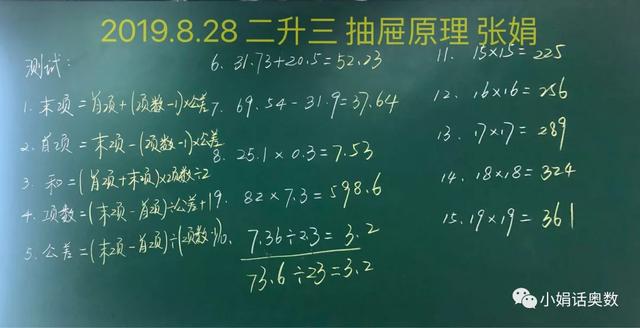 2019.8.28 二升三 抽屉原理 张娟
测试:
1. 末项=首项+(项数-1)×公差
2. 首项=末项-(项数-1)×公差
3. 和=(首项+末项)×项数÷2
4. 项数=(末项-首项)÷公差+1
5. 公差=(末项-首项)÷(项数-1)
6. 31.73+20.5=52.23
7. 69.54-31.9=37.64
8. 25.1×0.3=7.53
9. 82×7.3=598.6
10. 7.36÷2.3=3.2
73.6÷23=3.2
11. 15×15=225
12. 16×16=256
13. 17×17=289
14. 18×18=324
15. 19×19=361
小娟话奥数